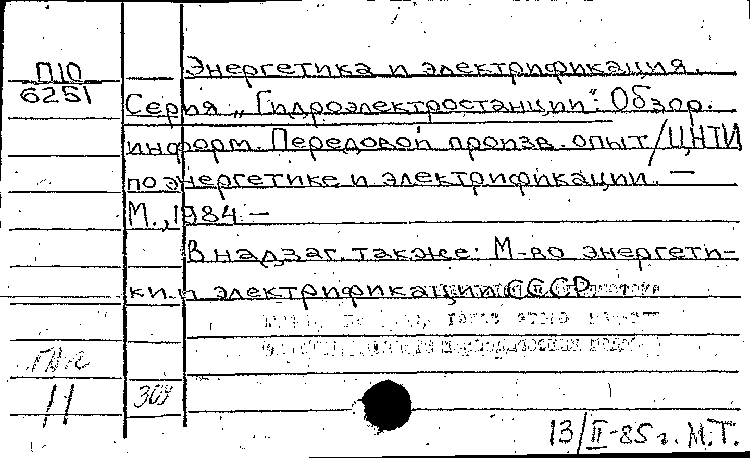 П10
6251
Энергетика и электрификация.
Серия „Гидроэлектростанции": Обзор.
информ. Передовой произв. опыт / ЦНТИ
по энергетике и электрификации. —
М., 1984 —
В надзаг. также: М-во энергети-
ки и электрификации СССР
11
309
13/II-85 г. М.Т.